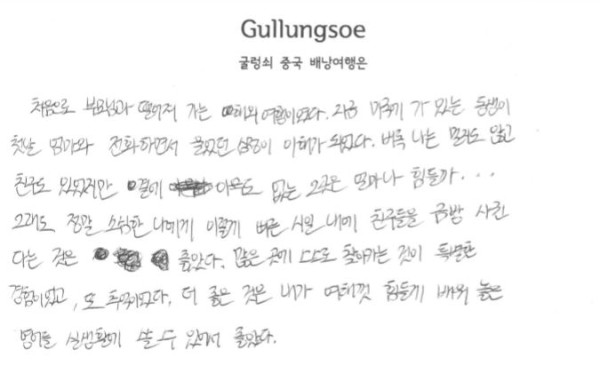 Gullungsoe
굴렁쇠 중국 배낭여행은
처음으로 부모님과 떨어져 가는 해외 여행이었다. 지금 미국에 가 있는 동생이
첫날 엄마와 전화하면서 울었던 심정이 이해가 되었다. 비록 나는 말도 않고
친구도 있었지만 옆에 아무도 없는 그곳은 얼마나 힘들까...
그래도 정말 소심한 나에게 이렇게 빠른 시일 내에 친구들을 금방 사귄
다는 것은 좋았다. 많은 곳에 스스로 찾아가는 것이 특별한
경험이었고, 또 추억이었다. 더 좋은 것은 내가 여태껏 힘들게 배워 놓은
영어를 실생활에 쓸 수 있어서 좋았다.